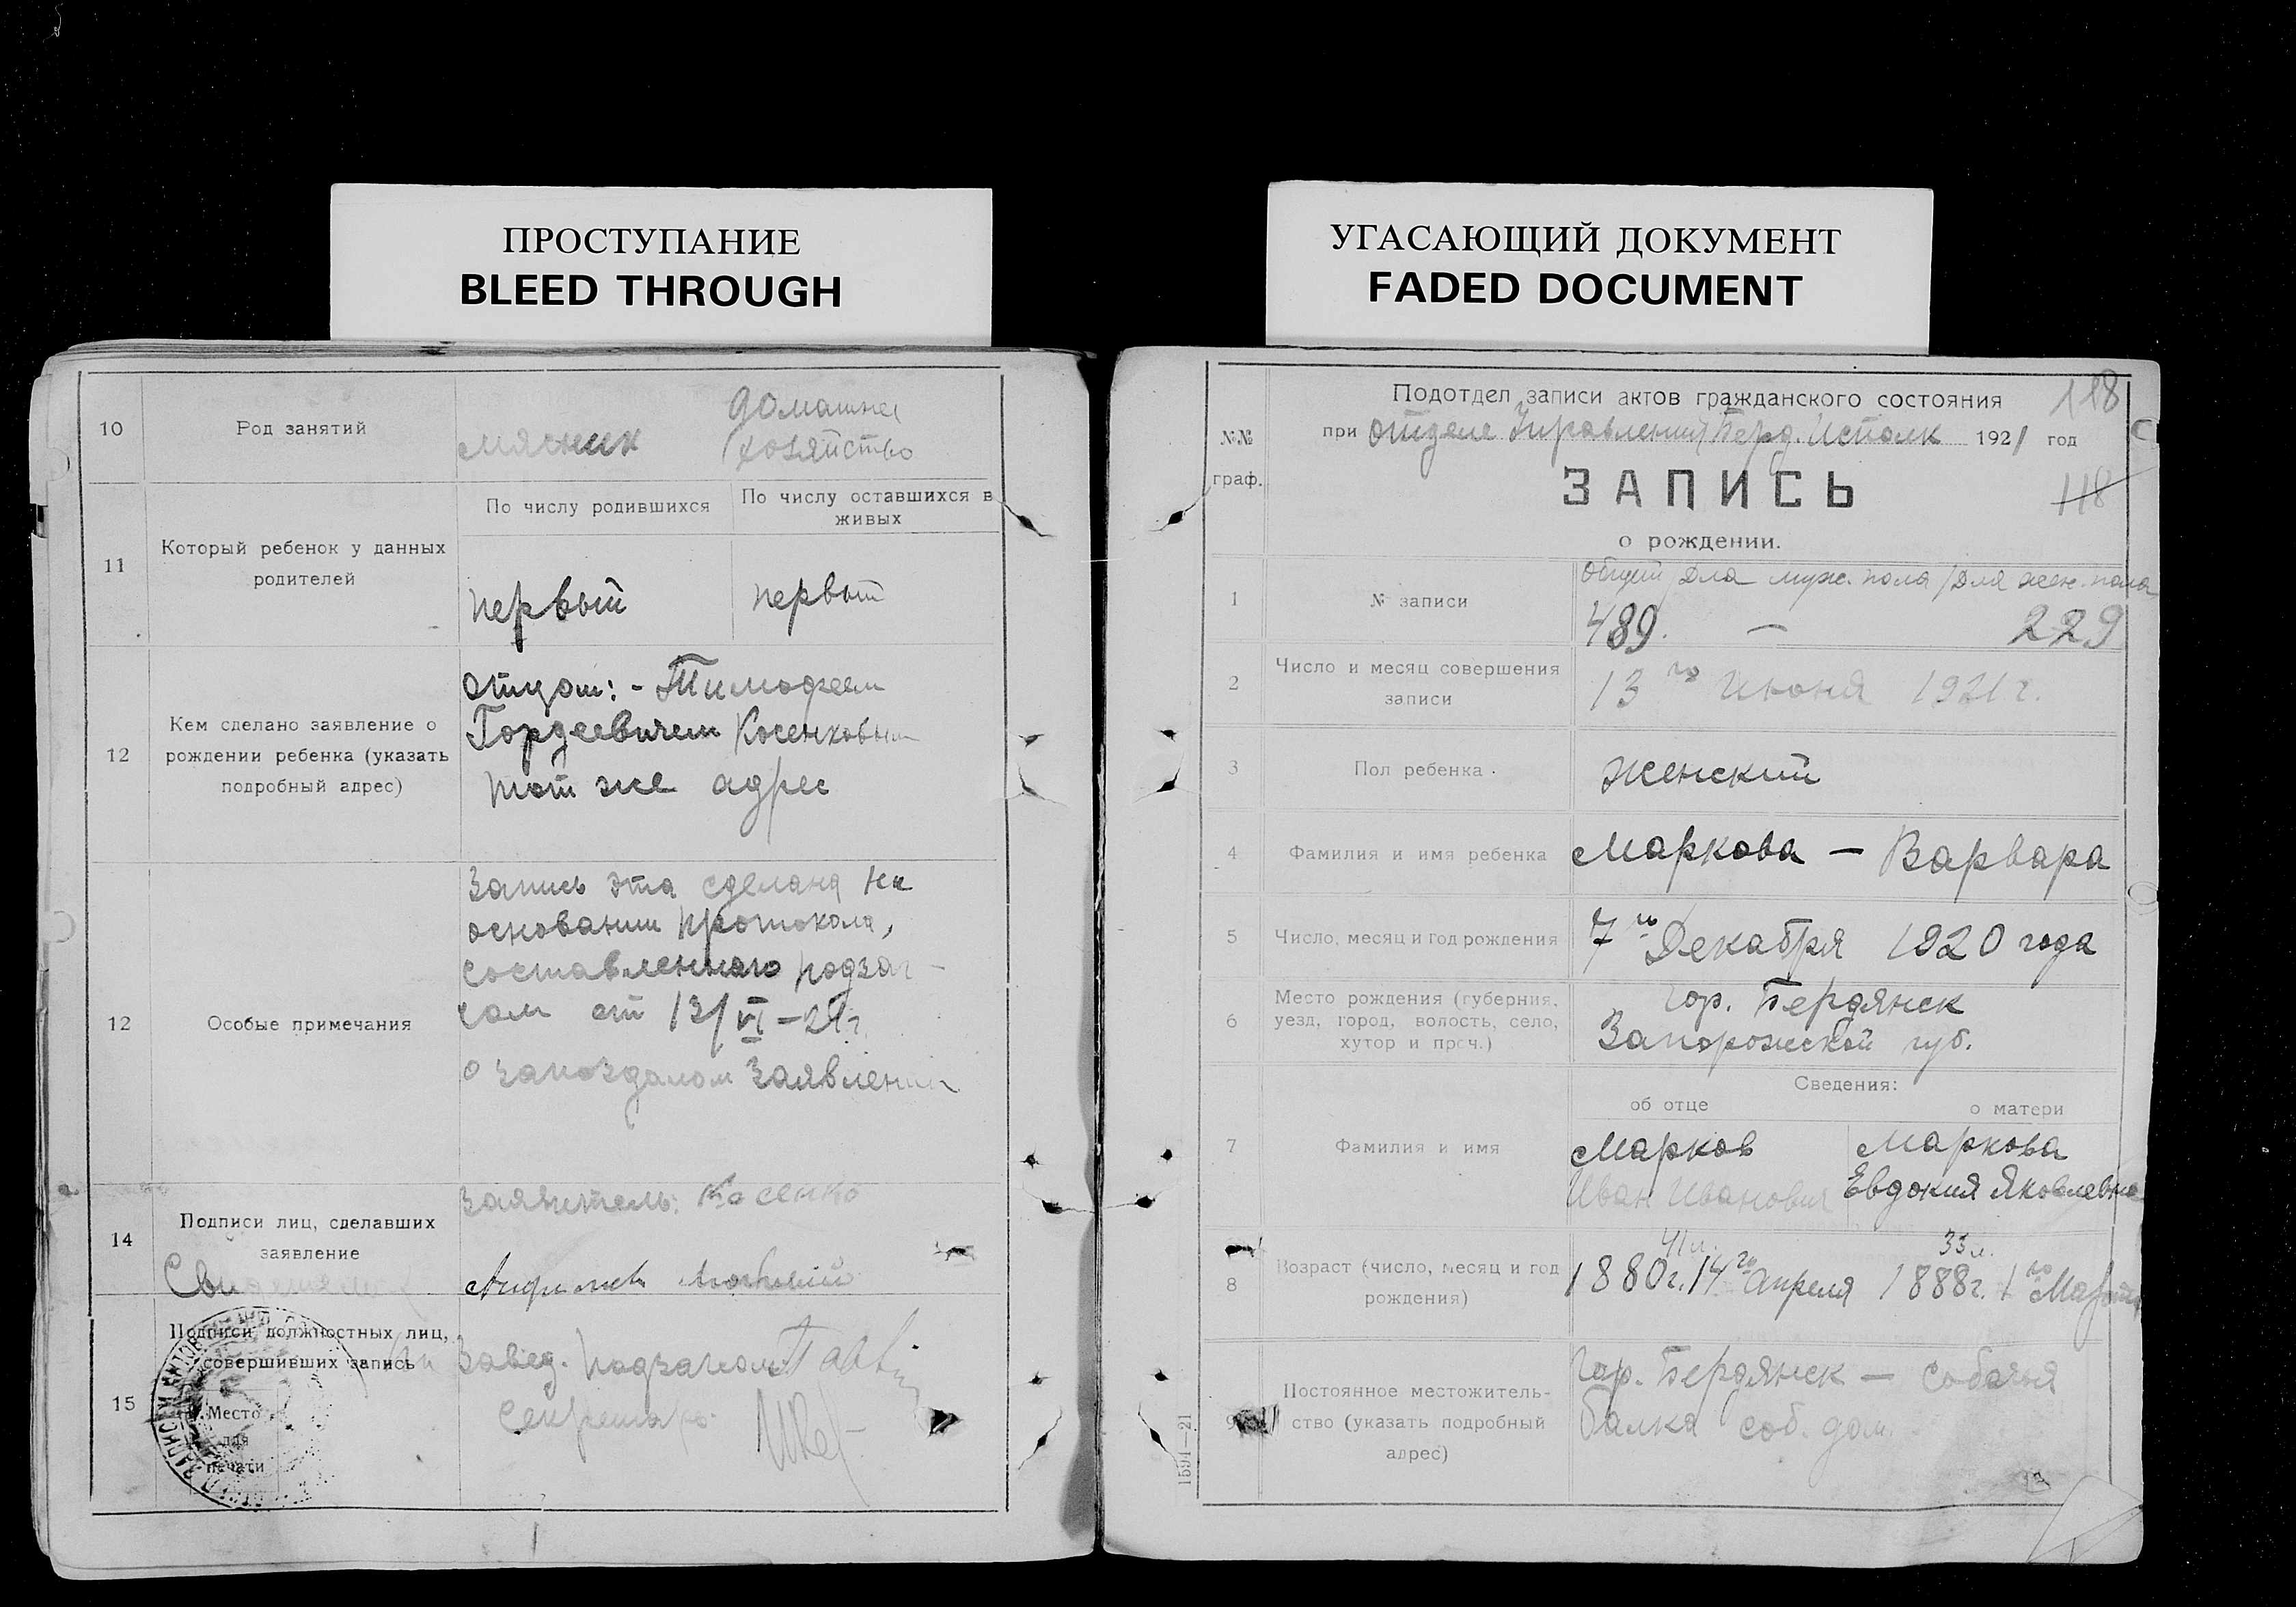 ПРОСТУПАНИЕ
BLEED THROUGH
10
Род занятий
мясник
домашнее
хозяйство
11
Который ребенок у данных
родителей
По числу родившихся
По числу оставшихся в
живых
первый
первый
12
Кем сделано заявление о
рождении ребенка (указать
подробный адрес)
отцом: - Тимофеем
Гордеевичем Косенковым
тот же адрес
12
Особые примечания
Запись эта сделана на
основании протокола,
составленного подзаг-
сом от 13/VI-21г.
о запоздалом заявлении
14
Подписи лиц, сделавших
заявление
заявитель: Косенко
15
Подписи должностных лиц,
совершивших запись
Место
для
печати
Завед. подзагсом
Секретарь
УГАСАЮЩИЙ ДОКУМЕНТ
FADED DOCUMENT
№№
граф.
Подотдел записи актов гражданского состояния
при Отделе Управления Берд. Исполк 1921 год
118
118
ЗАПИСЬ
о рождении.
1
№ записи
Общий Для муж. пола / Для жен. пола
489. — 229
2
Число и месяц совершения
записи
13го Июня 1921 г.
3
Пол ребенка
Женский
4
Фамилия и имя ребенка
Маркова — Варвара
5
Число, месяц и год рождения
7го Декабря 1920 года
6
Место рождения (губерния,
уезд, город, волость, село,
хутор и проч.)
гор. Бердянск
Запорожской губ.
Сведения:
об отце
о матери
7
Фамилия и имя
Марков
Иван Иванович
Маркова
Евдокия Яковлевна
8
Возраст (число, месяц и год
рождения)
41 л.
1880г. 14го Апреля
33 л.
1888г. 1го Марта
9
Постоянное местожитель-
ство (указать подробный
адрес)
Гор. Бердянск — Собачья
балка соб. дом.
1594—21